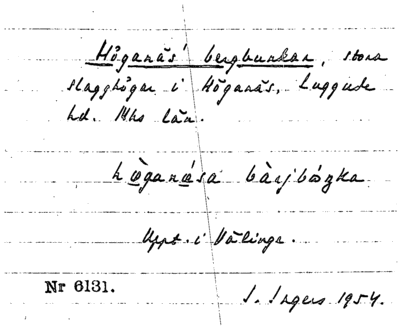 Höganäs' bergbunkar, stora
slagghögar i Höganäs, Luggude
hd. Mhs län.
Uppt. i Välinge.
Nr 6131.
I. Ingers 1954.